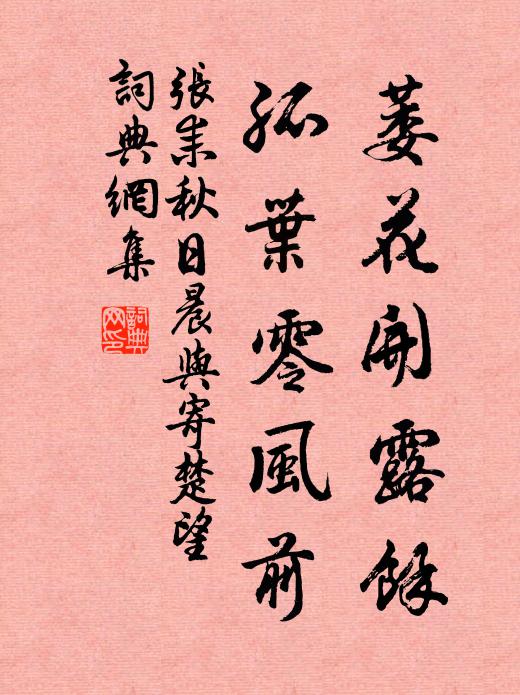 萎花開露餘
孤葉零風前
張耒秋日晨與寄楚望
詞典網集
詞典
网印